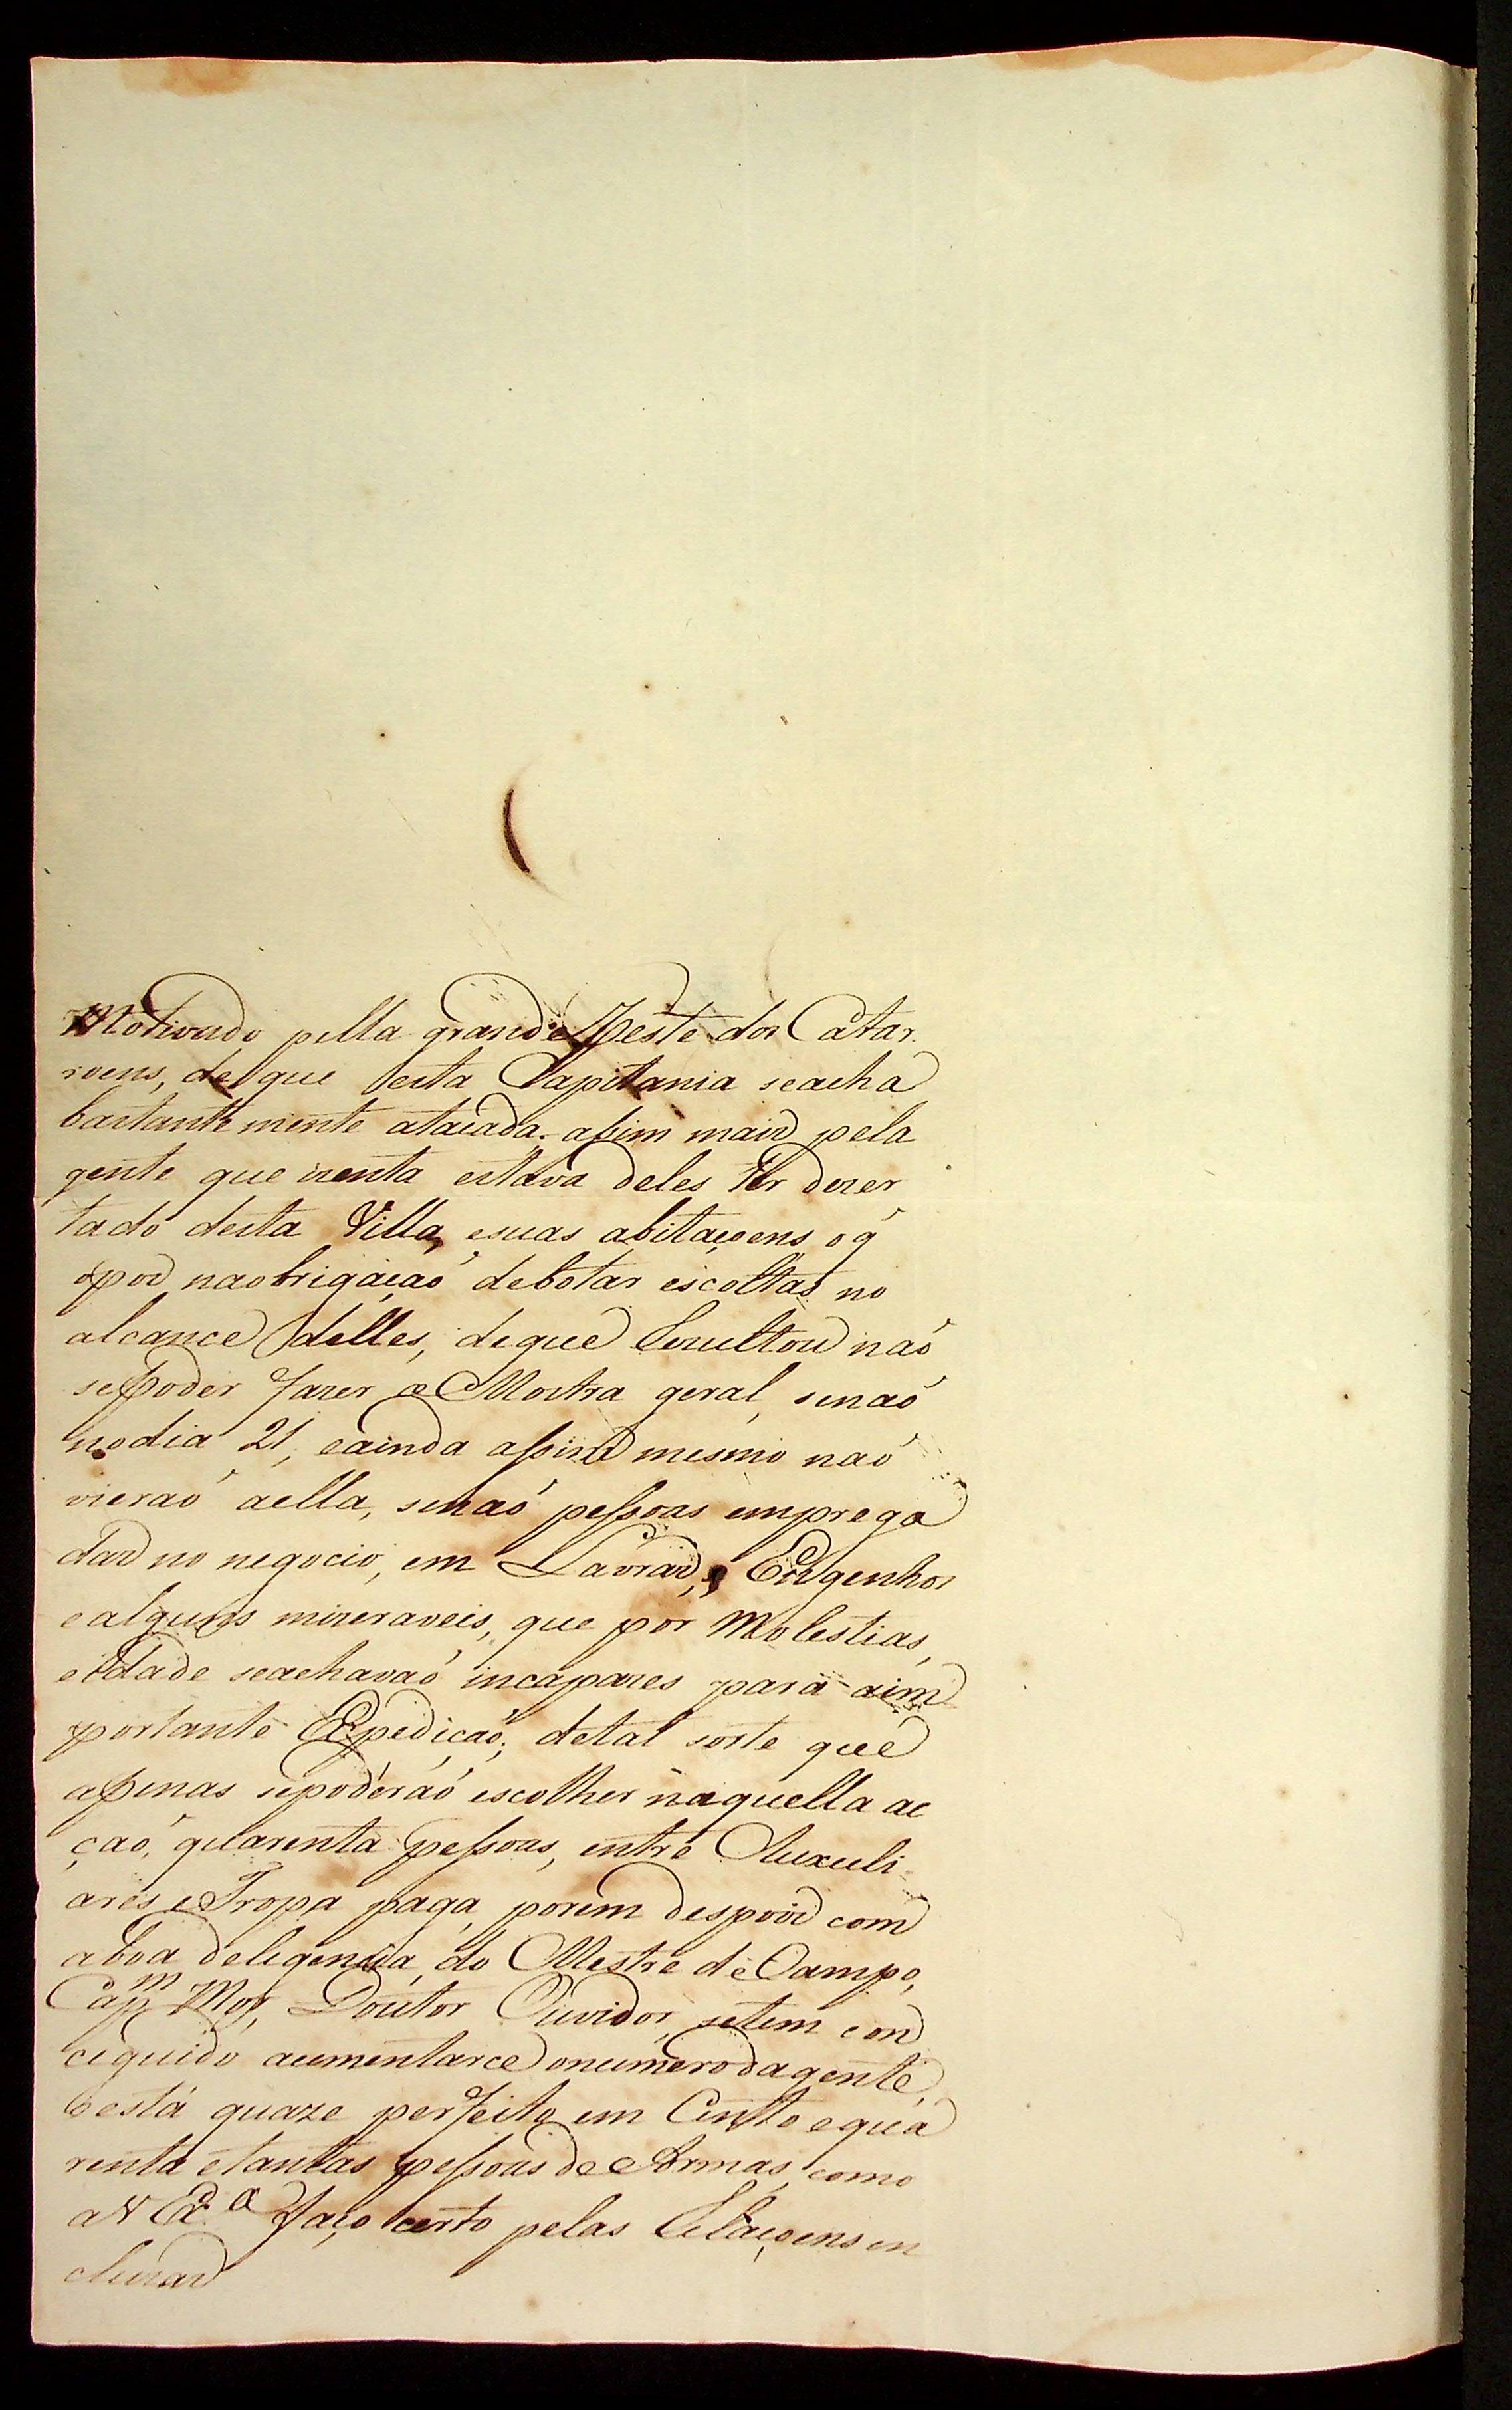 Motivado pella grande Peste dos Catar
roens, de que esta Capitania seacha
bastante mente atacada. aſsim mais pela
gente que izenta estava deles ter dezer
tado desta Villa, esuas abitaçoens oq̃
opos naobrigaçaõ debotar escoltas no
alcance delles, deque Rezultou naõ
sepoder fazer a Mostra geral, senaõ
nodia 21, eainda aſsim mesmo naõ
vieraõ aella, senaõ peſsoas emprega
das no negocio, em Lavras, e Engenhos
ealguns mizeraveis, que por Molestias,
eidade seachavaõ incapazes para aim
portante Expediçaõ; detal sorte que
apenas sepoderaõ escolher naquella ac
çaõ, quarenta peſsoas, entre Auxuli-
ares e Tropa paga, porem despois com
aboa deligencia, do Mestre de Campo,
Cap.m Mor, Doutor Ouvidor, setem con
ceguido aumentarce onumerodagente,
eestá quaze perfeito em Cento equa
renta etantas peſsoas de Armas, como
aV Ex.a faço certo pelas Relaçoens in
cluzas